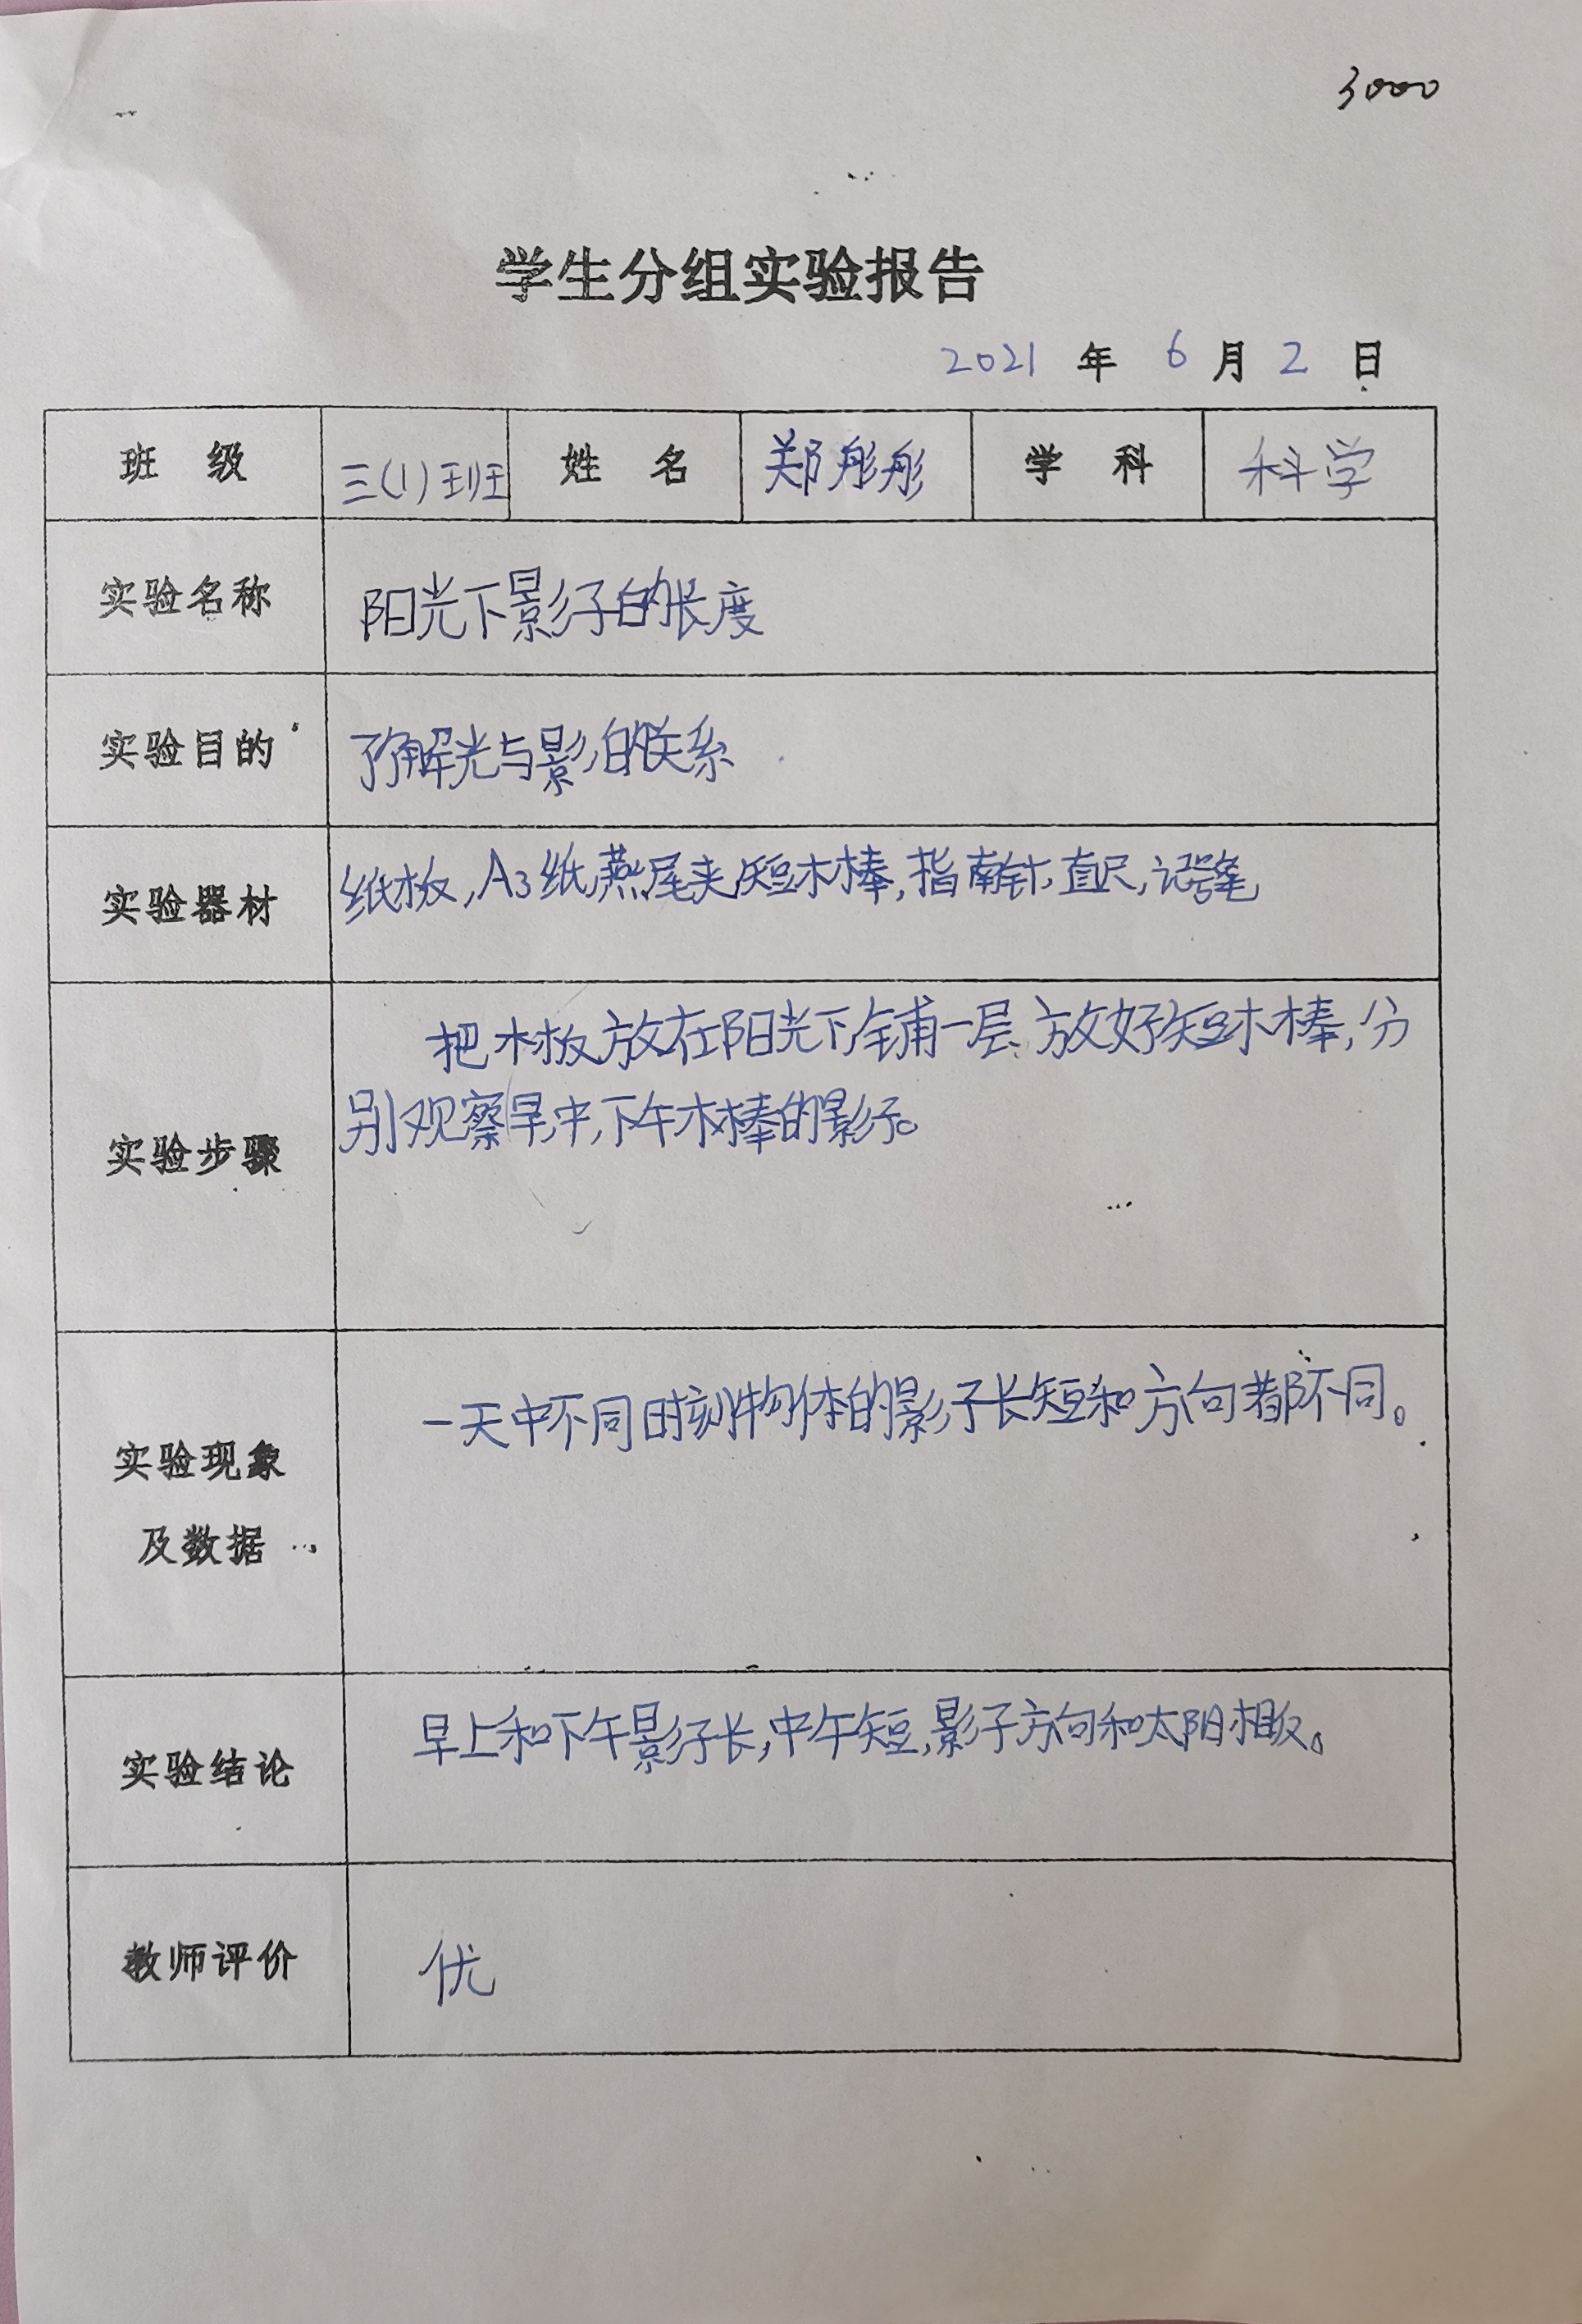 3000
学生分组实验报告
2021 年 6 月 2 日
班 级 三(1)班 姓 名 郑彤彤 学 科 科学
实验名称 阳光下影子的长度
实验目的 了解光与影的关系
实验器材 纸板,A3纸,燕尾夹,短木棒,指南针,直尺,记号笔
把木板放在阳光下铺一层,放好短木棒,分
别观察早,中,下午木棒的影子。
实验步骤
一天中不同时刻物体的影子长短和方向都不同。
实验现象
及数据
早上和下午影子长,中午短,影子方向和太阳相反。
实验结论
教师评价 优